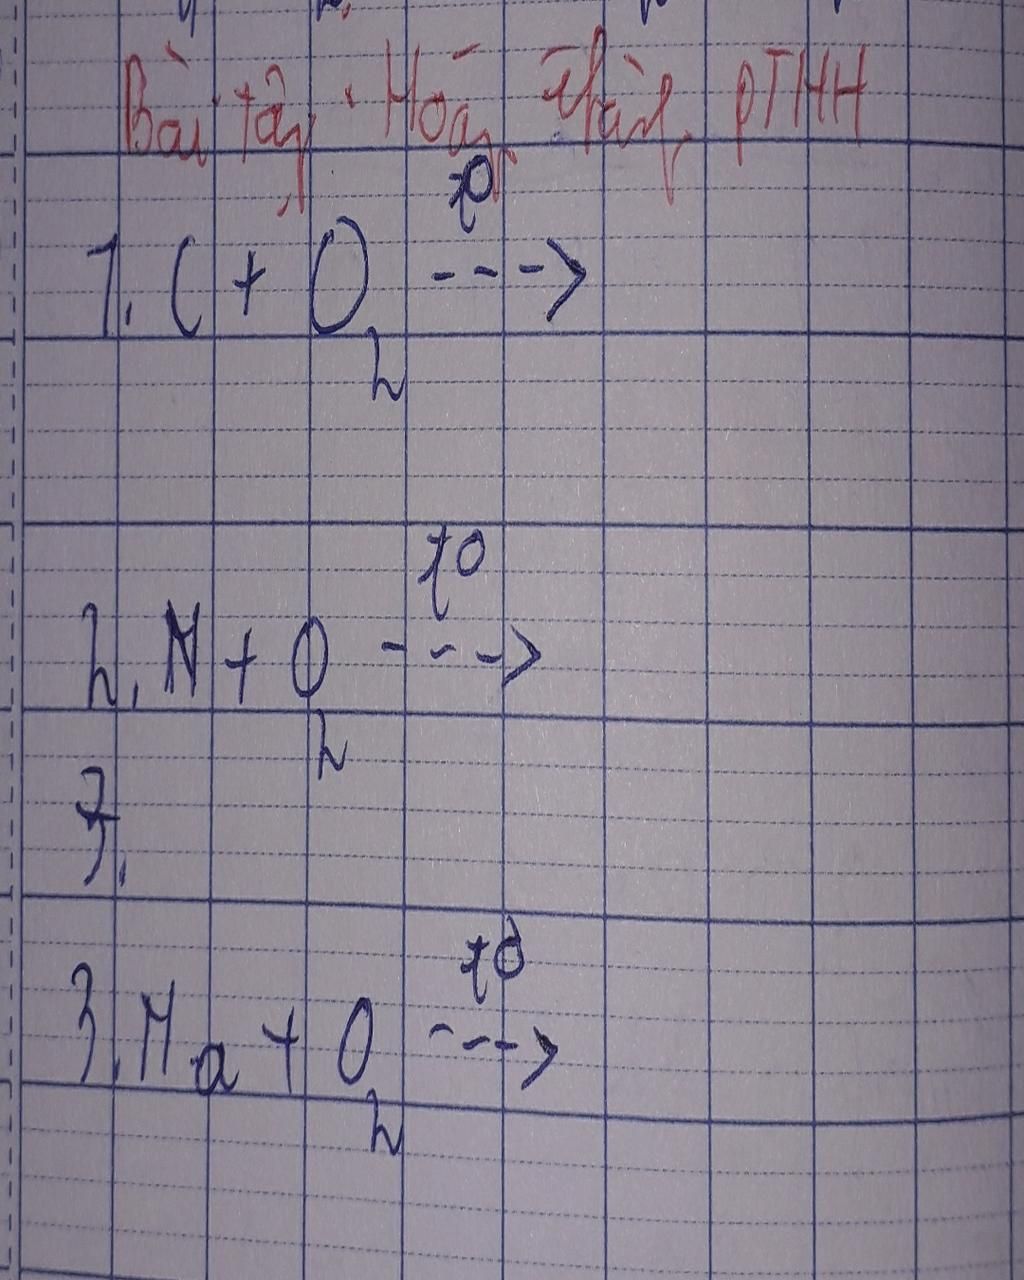 Bài tập: Hoàn thành PTHH
1. C + O₂ ---> t⁰
2. N + O₂ ---> t⁰
3.
3. Na + O₂ ---> t⁰